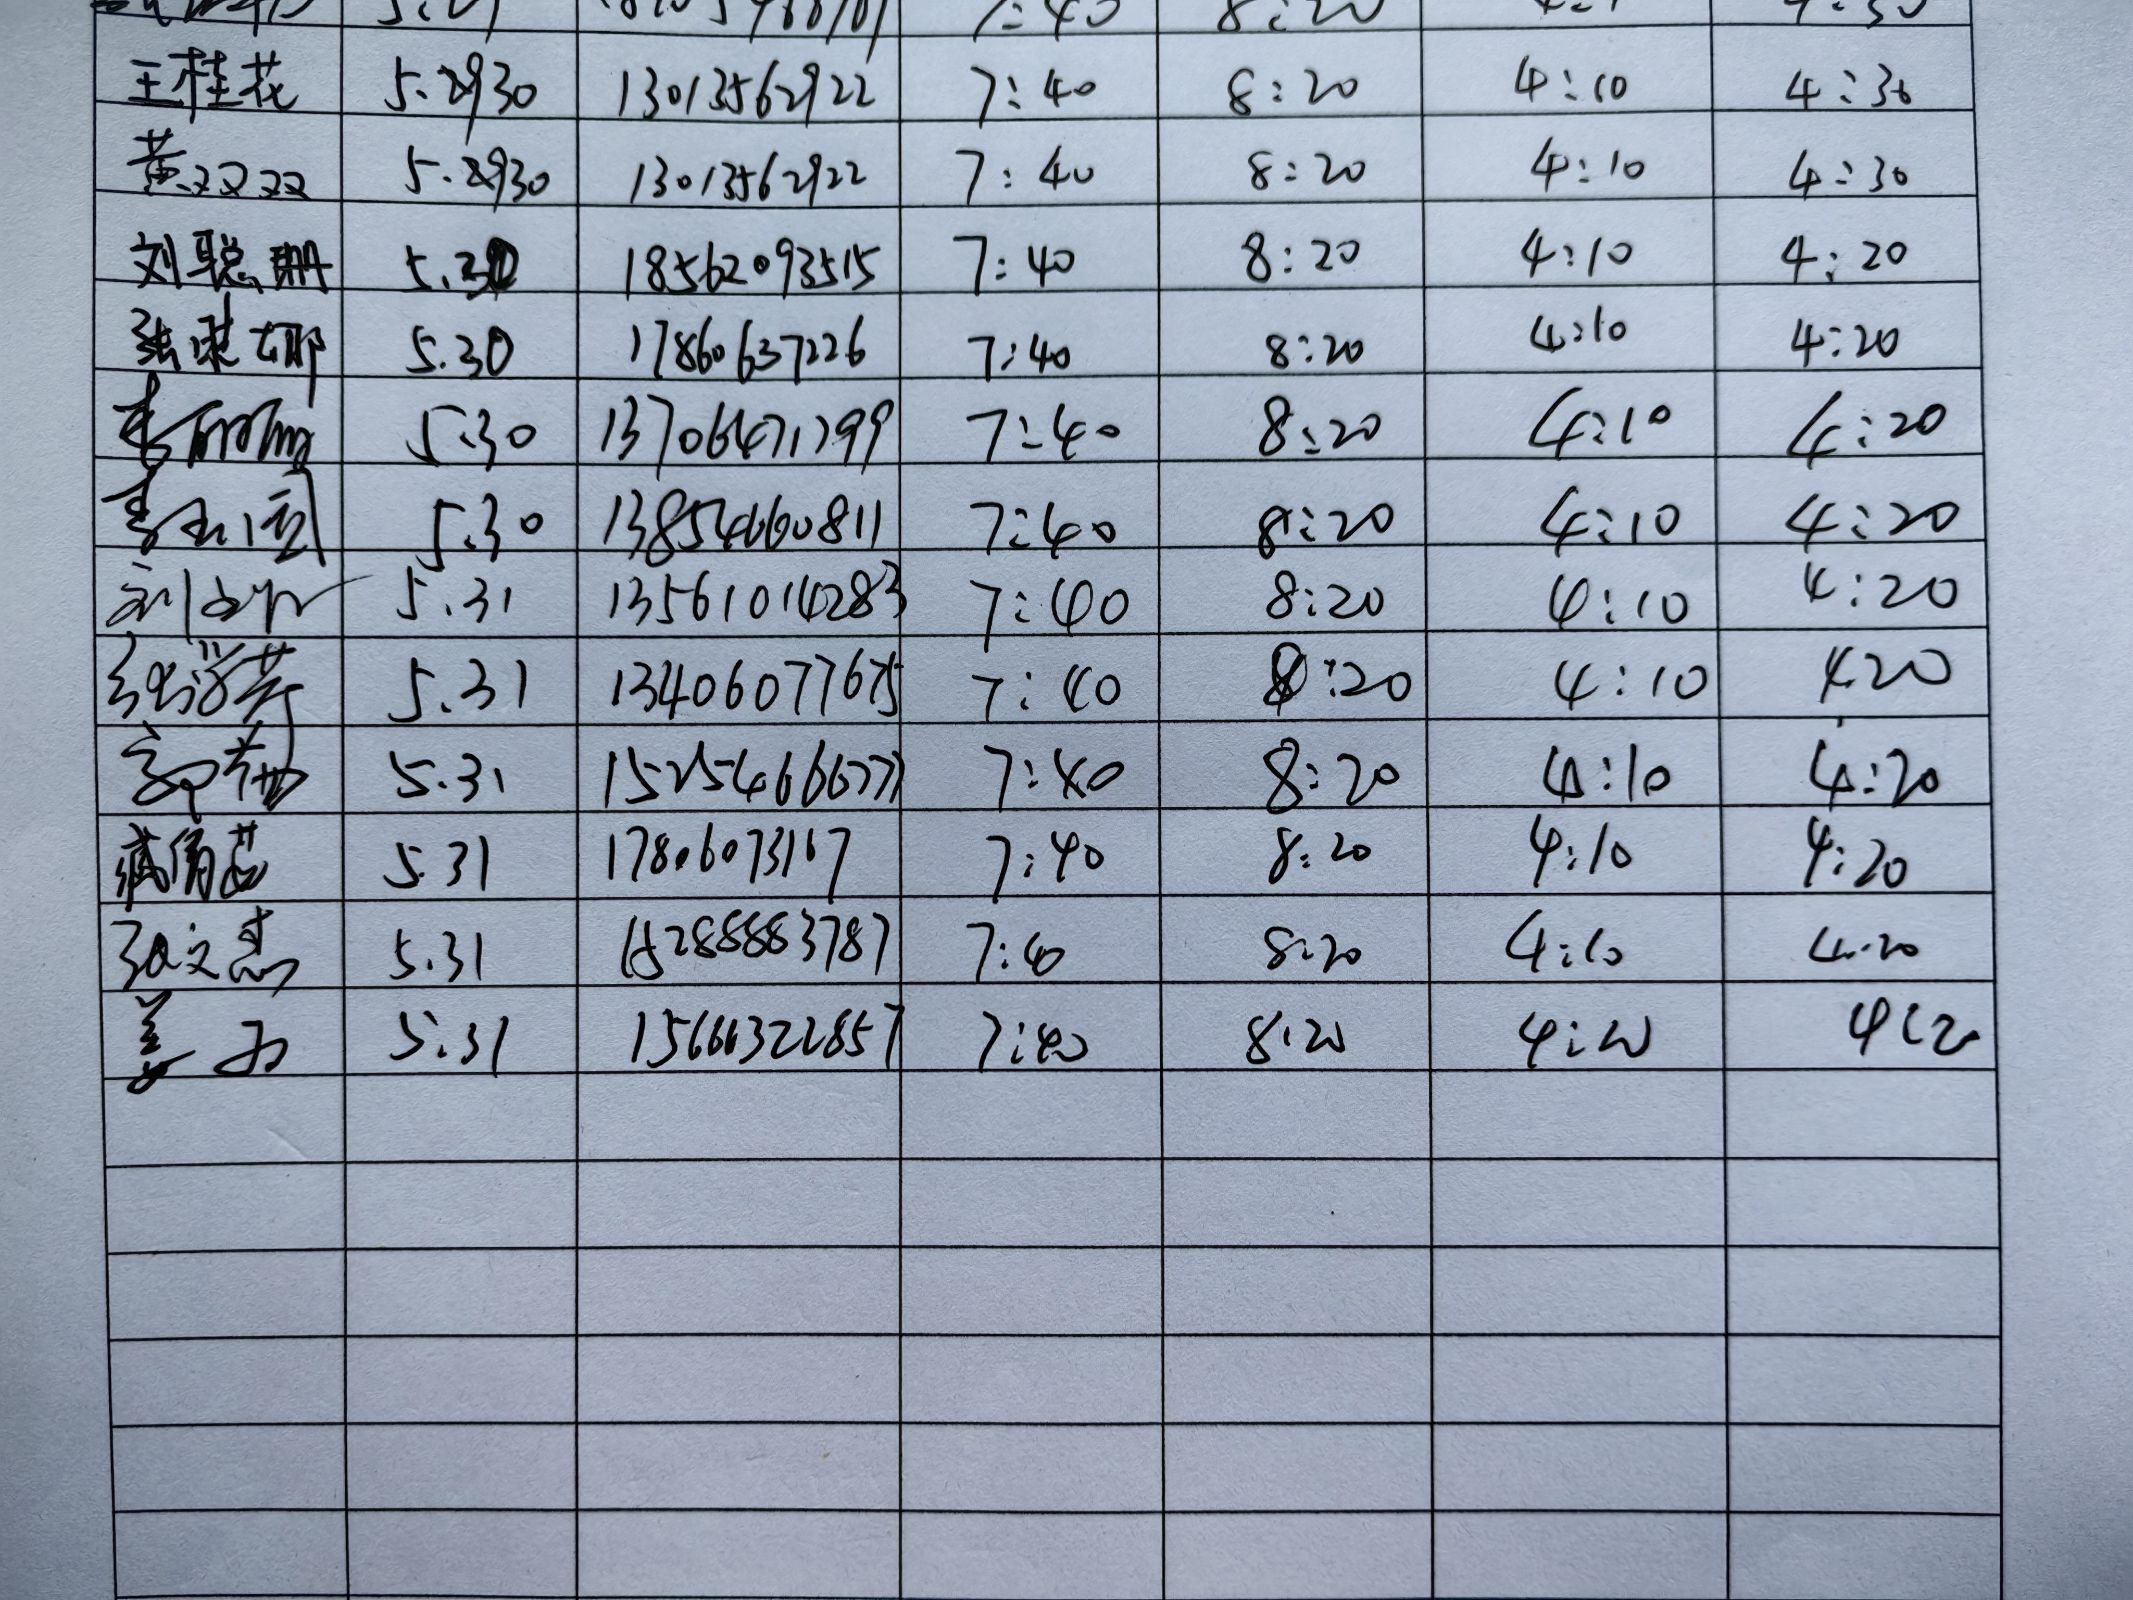 7:40 8:20 4:30
王桂花 5.2930 13013562922 7:40 8:20 4:10 4:30
黄双双 5.2930 13013562922 7:40 8:20 4:10 4:30
刘聪珊 5.30 18562093515 7:40 8:20 4:10 4:20
5.30 17860637226 7:40 8:20 4:10 4:20
5.30 13706471799 7:40 8:20 4:10 4:20
5.30 13854660811 7:40 8:20 4:10 4:20
5.31 13561014283 7:40 8:20 4:10 4:20
5.31 13406077675 7:40 8:20 4:10 420
5.31 7:40 8:20 4:10 4:20
5.31 17806073167 7:40 8:20 4:10 4:20
张文杰 5.31 15288883787 7:40 8:20 4:10 4.20
5.31 15666322857 7:40 8:20 4:20 4:20